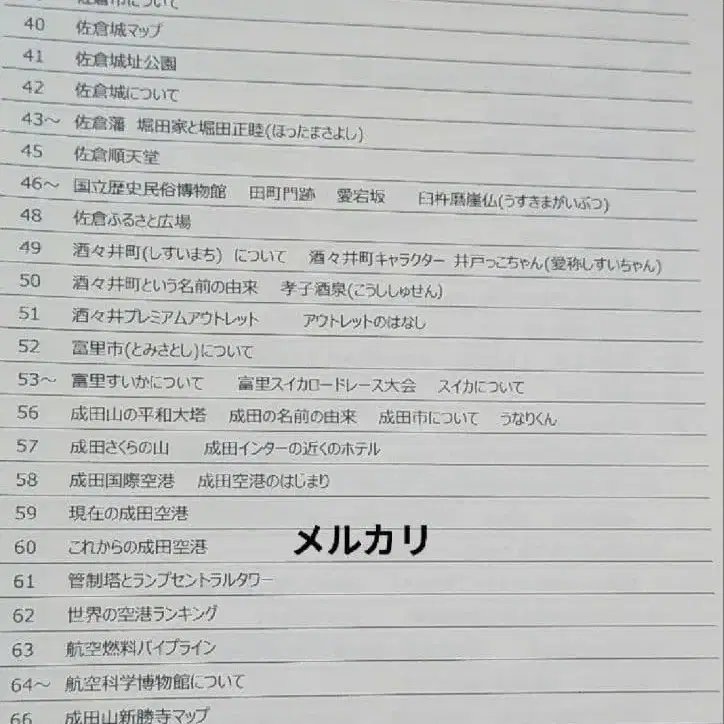 佐倉市について
40 佐倉城マップ
41 佐倉城址公園
42 佐倉城について
43～ 佐倉藩 堀田家と堀田正睦(ほったまさよし)
45 佐倉順天堂
46～ 国立歴史民俗博物館 田町門跡 愛宕坂 臼杵磨崖仏(うすきまがいぶつ)
48 佐倉ふるさと広場
49 酒々井町(しすいまち) について 酒々井町キャラクター 井戸っこちゃん(愛称しすいちゃん)
50 酒々井町という名前の由来 孝子酒泉(こうししゅせん)
51 酒々井プレミアムアウトレット アウトレットのはなし
52 富里市(とみさとし)について
53～ 富里すいかについて 富里スイカロードレース大会 スイカについて
56 成田山の平和大塔 成田の名前の由来 成田市について うなりくん
57 成田さくらの山 成田インターの近くのホテル
58 成田国際空港 成田空港のはじまり
59 現在の成田空港
60 これからの成田空港
メルカリ
61 管制塔とランプセントラルタワー
62 世界の空港ランキング
63 航空燃料パイプライン
64～ 航空科学博物館について
66 成田山新勝寺マップ